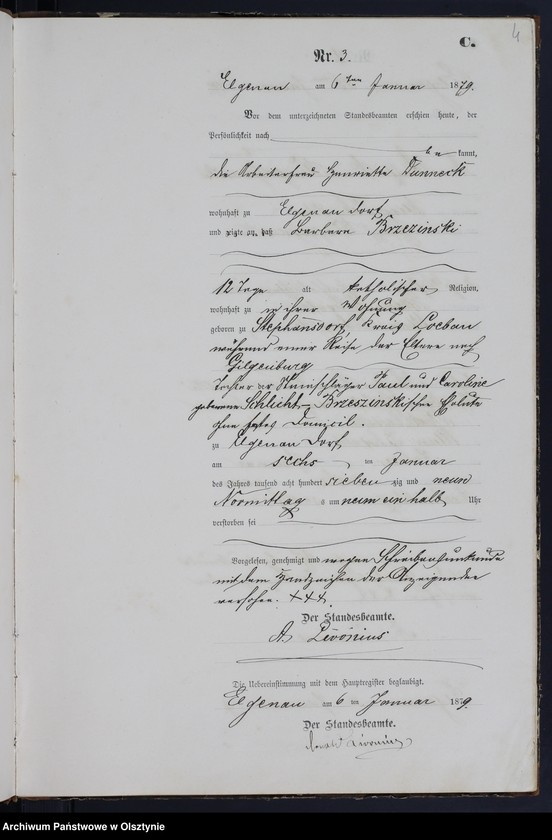 4
C.
Nr. 3.
Elgenau am 6 ten Januar 1879.
Vor dem unterzeichneten Standesbeamten erschien heute, der
Persönlichkeit nach
be kannt,
die Arbeiterfrau Henriette Dunneck
wohnhaft zu Elgenau Dorf
und zeigte an, daß Barbara Brzezinski
12 Tage alt katholischer Religion,
wohnhaft zu in ihrer Wohnung
geboren zu Stephansdorf, Kreis Loebau
während einer Reise der Eltern nach
Gilgenburg
Tochter der Steinschläger Paul und Caroline
geborene Schlicht-Brzeszinskischen Eheleute
ohne festes Domicil.
zu Elgenau Dorf
am sechs ten Januar
des Jahres tausend acht hundert sieben zig und neun
Vormittag s um neun ein halb Uhr
verstorben sei
Vorgelesen, genehmigt und wegen Schreibensunkunde
mit dem Handzeichen der Anzeigenden
versehen. +++
Der Standesbeamte.
A. Levonius
Die Uebereinstimmung mit dem Hauptregister beglaubigt.
Elgenau am 6 ten Januar 1879.
Der Standesbeamte.
Archiwum Państwowe w Olsztynie